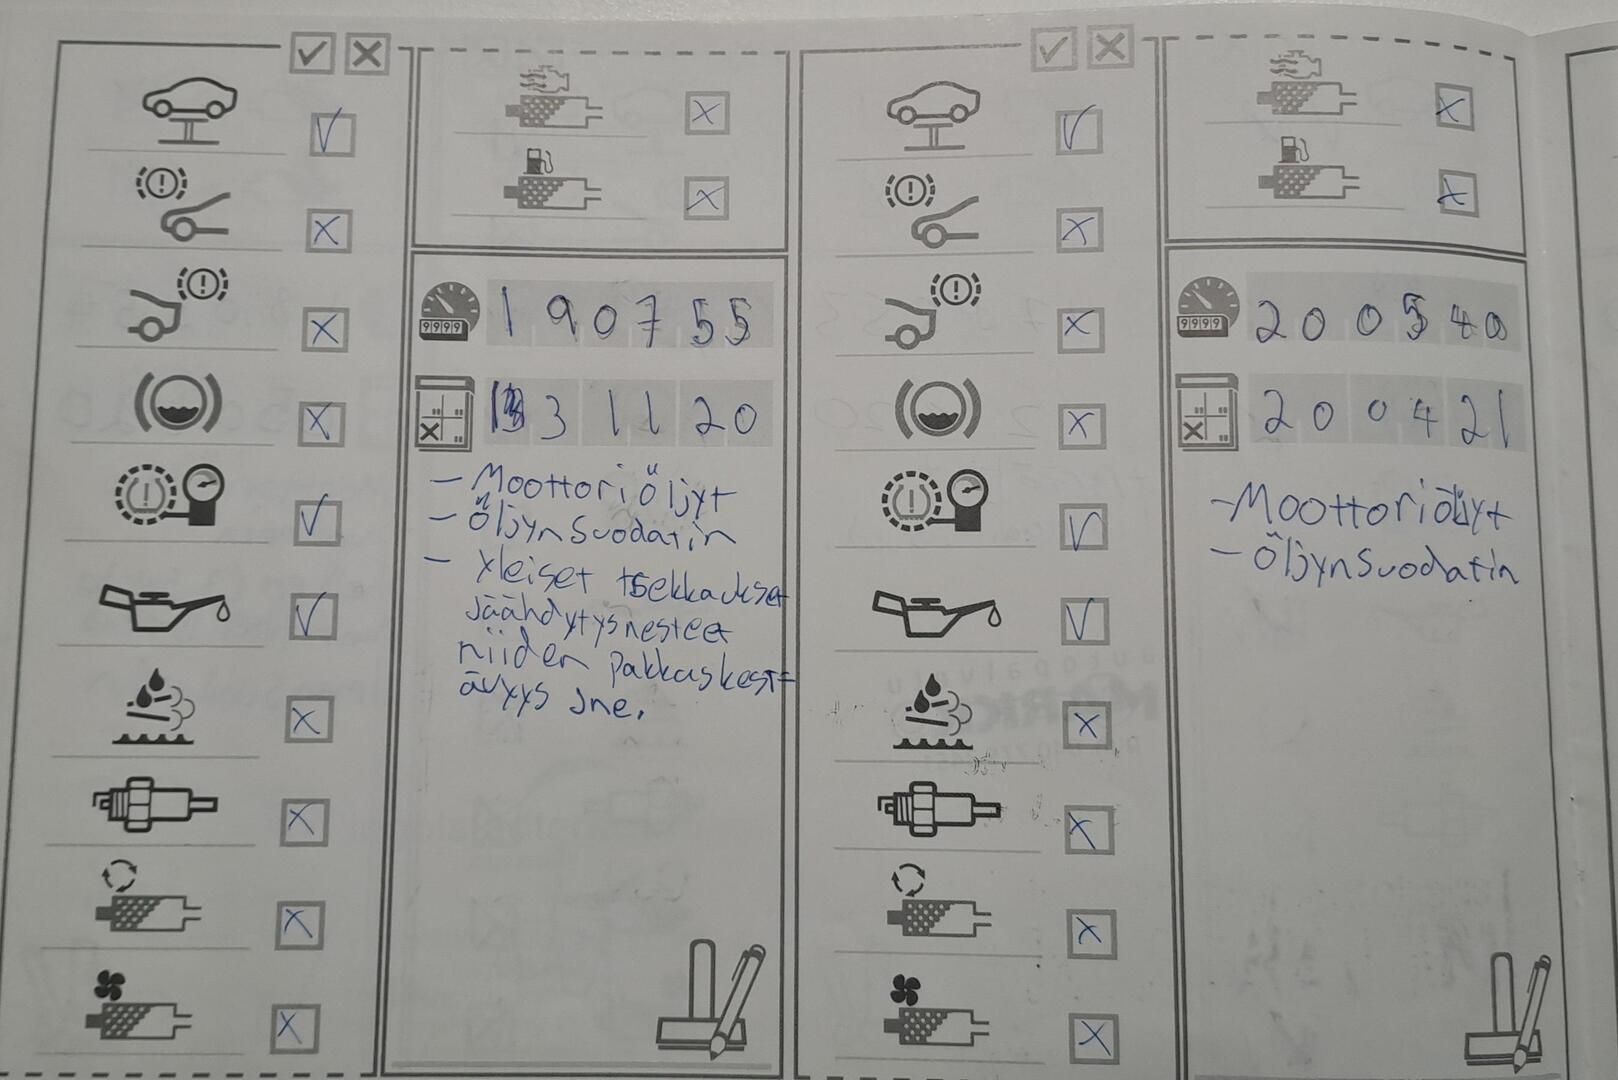 190755
9999
13 11 20
- Moottoriöljyt
- Öljynsuodatin
- Yleiset tsekkaukset
Jäähdytysnesteet
niiden pakkaskest=
ävyys Jne.
200540
9999
20 04 21
- Moottoriöljyt
- Öljynsuodatin